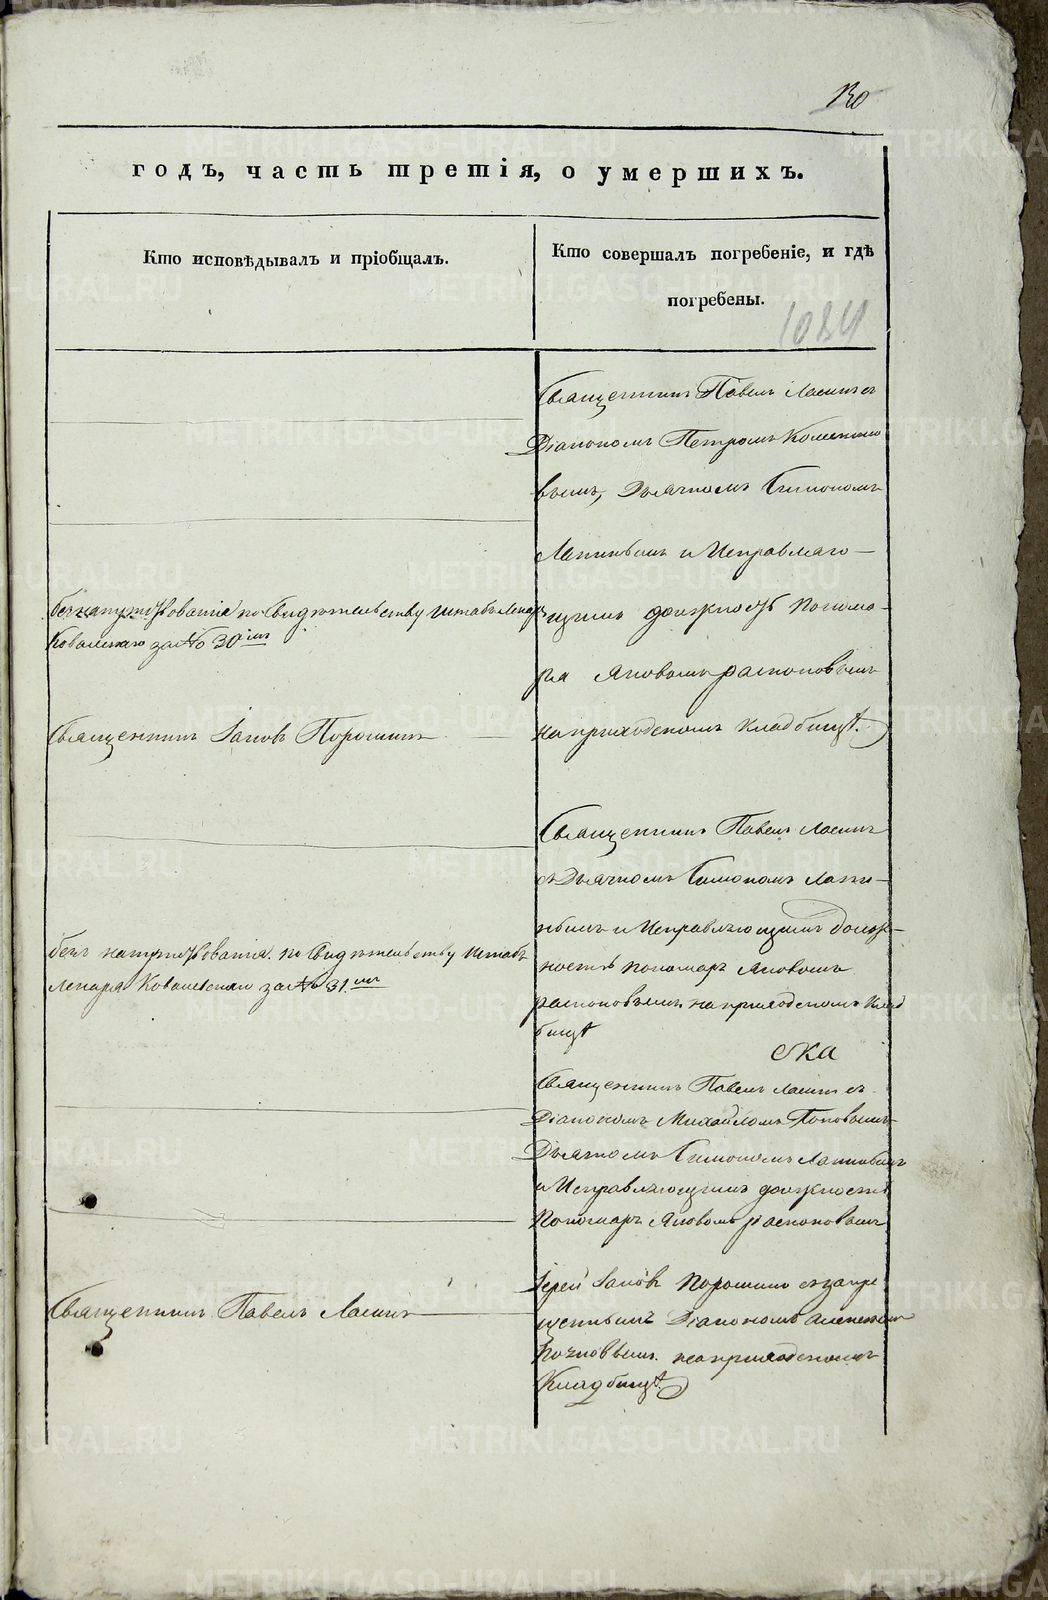 130
годъ, часть третія, о умершихъ.
Кто исповѣдывалъ и пріобщалъ.
Кто совершалъ погребеніе, и гдѣ
погребены.
1084
Священникъ Павелъ съ
Діакономъ Петромъ
вымъ, Дьячкомъ Симономъ
и Исправляю-
щимъ должность понома-
ря Яковомъ распоповымъ
на приходскомъ кладбищѣ.
безъ напутствованія по Свидѣтельству Штабъ Лекаря
за № 30
Священникъ Іаковъ Порошинъ
Священникъ Павелъ
съ Дьячкомъ Симономъ
и Исправляющимъ долж-
ность пономаря Яковомъ
распоповымъ на приходскомъ Клад
бищѣ
безъ напутствованія по Свидѣтельству Штабъ
Лекаря за № 31
ска
Священникъ Павелъ съ
Діакономъ Михайломъ Поповымъ
Дьячкомъ Симономъ
и Исправляющимъ должность
Пономаря Яковомъ распоповымъ
Іерей Іаковъ Порошинъ съ запре
щеннымъ Діакономъ
на приходскомъ
Кладбищѣ
Священникъ Павелъ
METRIKI.GASO-URAL.RU